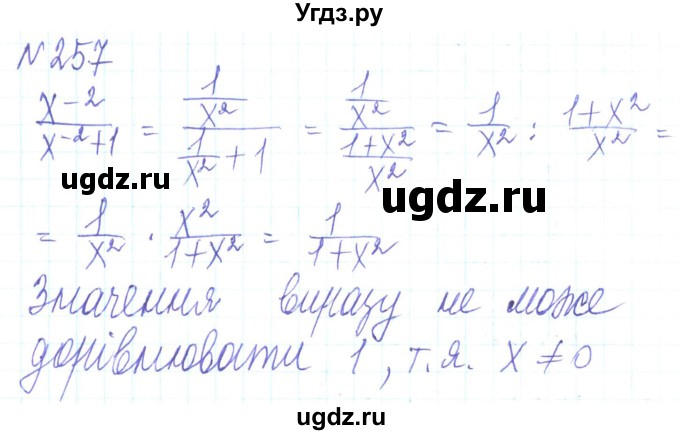 Угдз.ру
№257
x⁻²/(x⁻²+1) = (1/x²)/(1/x² + 1) = (1/x²)/((1+x²)/x²) = 1/x² : (1+x²)/x² =
ugdz.ru
ugdz.ru
= 1/x² · x²/(1+x²) = 1/(1+x²)
Значення виразу не може
ugdz.ru
дорівнювати 1, т.я. x ≠ 0
ugdz.ru